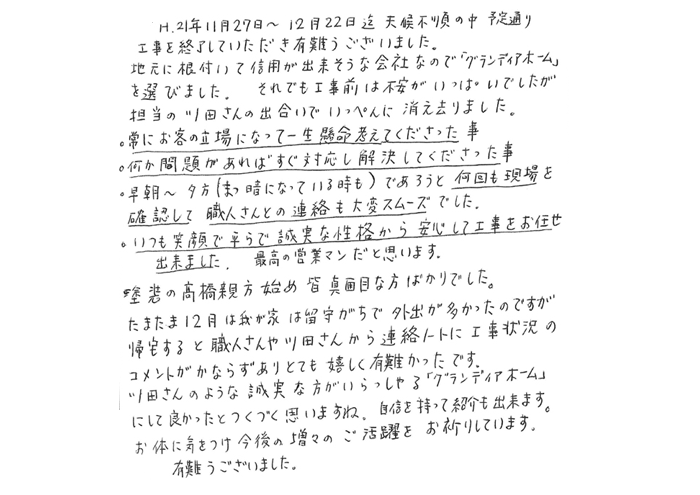 H.21年11月27日～12月22日迄 天候不順の中 予定通り
工事を終了していただき有難うございました。
地元に根付いて信用が出来そうな会社なので「グランディアホーム」
を選びました。 それでも工事前は不安がいっぱいでしたが
担当のツ田さんの出合いでいっぺんに 消え去りました。
○常にお客の立場になって一生懸命考えてくださった事
○何か問題があればすぐ対応し解決してくださった事
○早朝～夕方(まっ暗になっている時も)であろうと何回も現場を
確認して 職人さんとの連絡も大変スムーズでした。
○いつも笑顔で平らで誠実な性格から安心して工事をお任せ
出来ました. 最高の営業マンだと思います。
塗装の高橋親方始め 皆真面目な方ばかりでした。
たまたま12月は我が家は留守がちで外出が多かったのですが
帰宅すると職人さんやツ田さんから連絡ノートに工事状況の
コメントがかならずありとても嬉しく有難かったです。
ツ田さんのような誠実な方がいらっしゃる「グランディアホーム」
にして良かったとつくづく思いますね. 自信を持って紹介も出来ます。
お体に気をつけ今後の増々のご活躍をお祈りしています。
有難うございました。